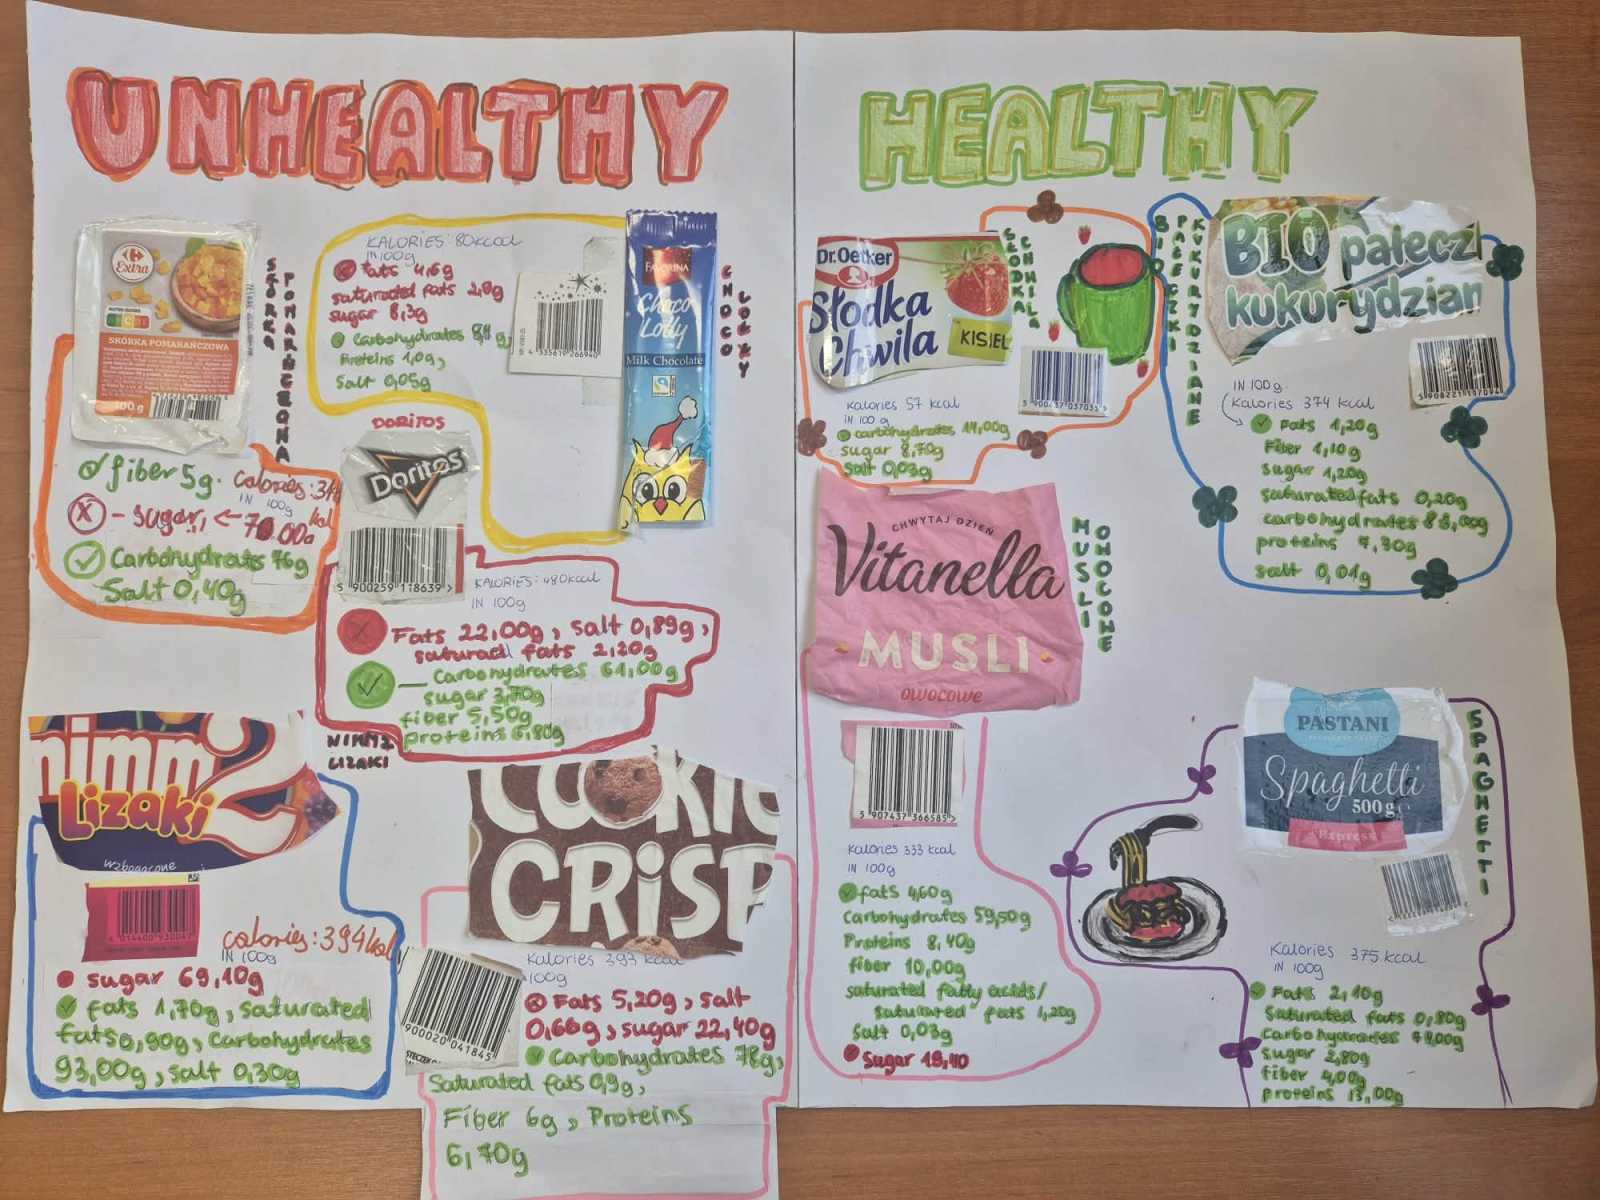 UNHEALTHY
Carrefour
Extra
SKÓRKA POMARAŃCZOWA
100 g
SKÓRKA
POMARAŃCZOWA
fiber 5g.
IN 100g
- sugar, ← 70.00g
Carbohydrates 76g
Salt 0,40g
KALORIES: 80kcal
in 100g
fats 4,6g
saturated fats 2,8g
sugar 8,3g
Carbohydrates 8,8g,
Proteins 1,0g,
salt 0,05g
4 335619 266940
FAVORINA
Choco
Lolly
Milk Chocolate
CHOCO
LOLLY
DORITOS
Doritos
5 900259 118639 >
KALORIES: 480kcal
IN 100g
Fats 22,00g, salt 0,89g,
saturad fats 2,20g
Carbohydrates 61,00g
sugar 3,70g
fiber 5,50g
proteins 6,80g
NIMM2
LIZAKI
nimm2
Lizaki
wzbogacone
4 014400 930047
calories: 394kal
IN 100g
sugar 69,10g
fats 1,70g, saturated
fats 0,90g, Carbohydrates
93,00g, salt 0,30g
COOKIE
CRISP
Kalories 393 kcal
100g
900020 041845
Fats 5,20g, salt
0,66g, sugar 22,40g
Carbohydrates 78g,
Saturated fats 0,9g,
Fiber 6g, Proteins
6,70g
HEALTHY
Dr. Oetker
Słodka
Chwila
KISIEL
SŁODKA
CHWILA
5 900437 037035
Kalories 57 kcal
IN 100 g
carbohydrates 14,00g
sugar 8,70g
Salt 0,03g
BIO pałecz
kukurydzian
BIO
PAŁECZKI
KUKURYDZIANE
5 908221 117094
IN 100g.
Kalories 374 kcal
Fats 1,20g
Fiber 1,10g
sugar 1,20g
saturated fats 0,20g
carbohydrates 83,00g
proteins 7,30g
salt 0,01g
CHWYTAJ DZIEŃ
Vitanella
MUSLI
owocowe
MUSLI
OWOCOWE
5 907437 366585 >
Kalories 333 kcal
IN 100g
fats 4,60g
Carbohydrates 59,50g
Proteins 8,40g
fiber 10,00g
saturated fatty acids/
saturated fats 1,20g
Salt 0,03g
Sugar 19,40
PASTANI
Spaghetti
500 g e
Express
SPAGHETTI
Kalories 375 kcal
IN 100g
Fats 2,10g
Saturated fats 0,80g
Carbohydrates 74,00g
sugar 2,80g
fiber 4,00g
proteins 13,00g